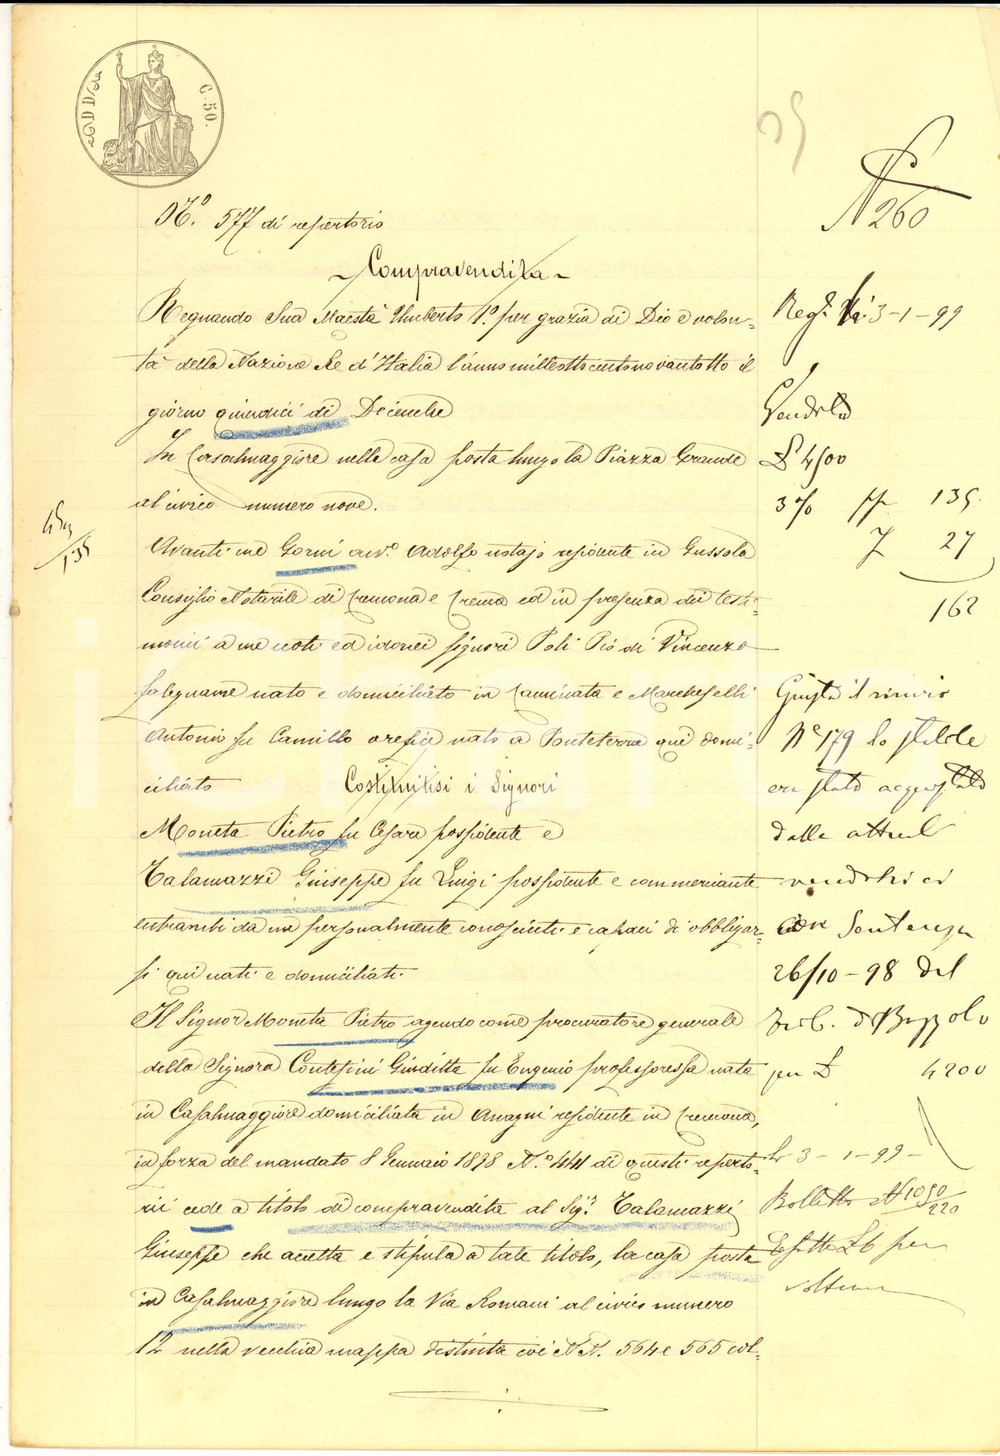 C. 50.
N.° 577 di repertorio
N 260
Compravendita
Regnando Sua Maestà Umberto 1.° per grazia di Dio e volon-
tà della Nazione Re d'Italia l'anno milleottocentonovantotto il
giorno quindici di Decembre
In Casalmaggiore nella casa posta lungo la Piazza Grande
al civico numero nove.
Avanti me Gorni avv.° Adolfo notajo residente in Gussola
Consiglio Notarile di Cremona e Crema ed in presenza dei testi-
monii a me noti ed idonei signori Poli Pio di Vincenzo
falegname nato e domiciliato in Caminata e Marcheselli
Antonio fu Camillo orefice nato a Ponteterra qui domi-
ciliato Costituitisi i Signori
Moneta Pietro fu Cesare possidente e
Talamazzi Giuseppe fu Luigi possidente e commerciante
entrambi da me personalmente conosciuti e capaci di obbligar-
si qui nati e domiciliati
Il Signor Moneta Pietro agendo come procuratore generale
della Signora Contesini Giuditta fu Eugenio professoressa nata
in Casalmaggiore domiciliata in Anagni residente in Cremona,
in forza del mandato 8 Gennaio 1898 N.° 441 di questi reperto-
rii cede a titolo di compravendita al Sig.r Talamazzi
Giuseppe che accetta e stipula a tale titolo, la casa posta
in Casalmaggiore lungo la Via Romani al civico numero
12 nella vecchia mappa distinta coi N.N. 564 e 565 col-
3-1-99
Vendita
£ 4500
3% 135
27
162
Giusta il rinvio
N° 179 lo stabile
era stato acquistato
dalla attuale
venditrice
con Sentenza
26/10-98 del
Trib. di Bozzolo
per £ 4200
3-1-99-
Bolletta N 1050/220